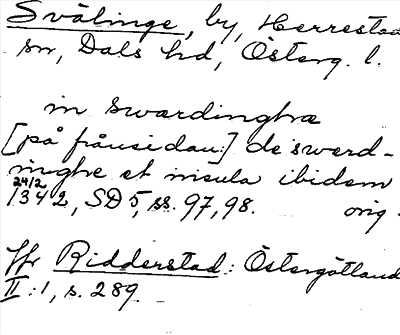 Svälinge, by, Herrestad
sn, Dals hd, Österg. l.
in swardinghæ
[på frånsidan:] de swerd-
inghe et insula ibidem
24/2
1342, SD 5, ss. 97, 98. orig.
Jfr Ridderstad: Östergötland
II:1, s. 289.